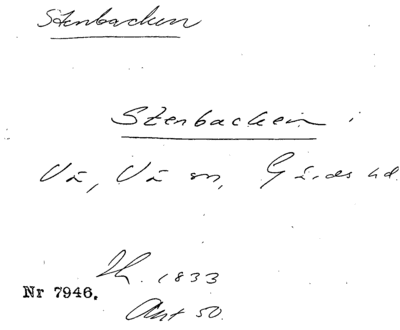 Stenbacken
Stenbacken i
Vä, Vä sn, Gärds hd.
Th. 1833
Nr 7946.
Ant 50.